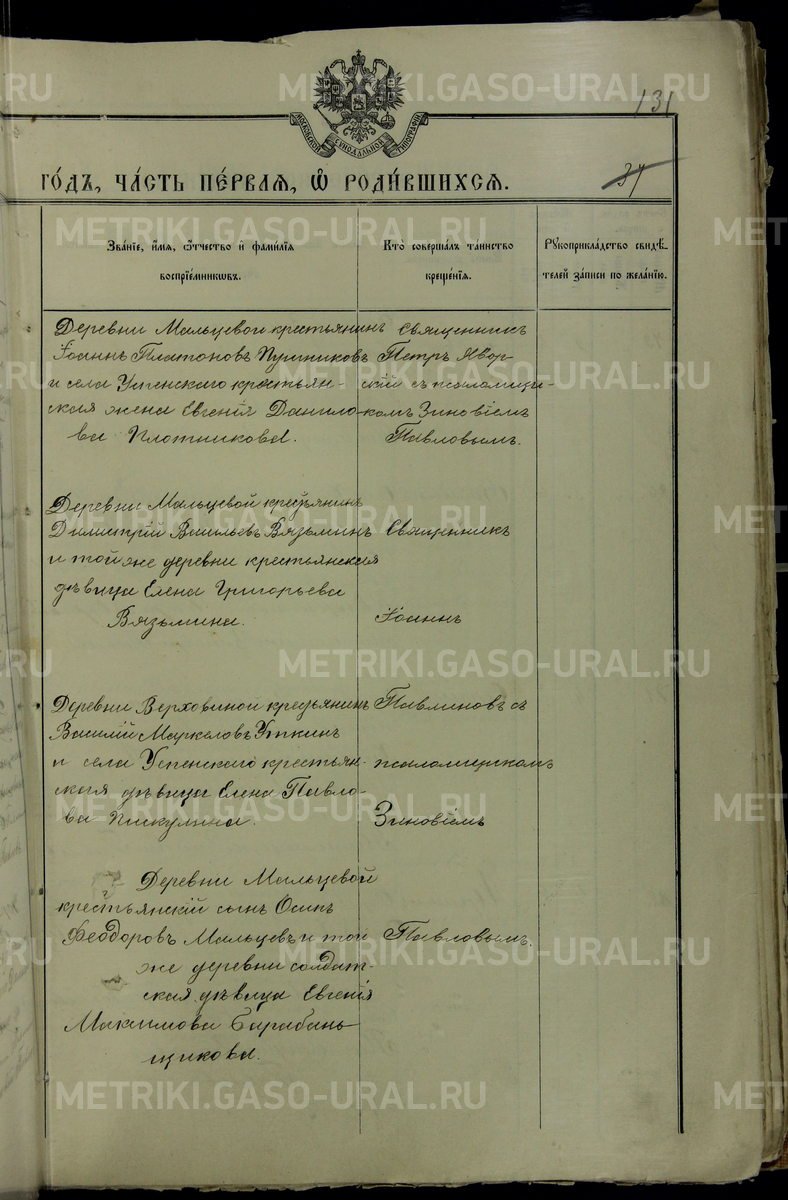 131
МОСКОВСКОЙ СѴНОДАЛЬНОЙ ТИПОГРАФІИ
ГО́ДЪ, ЧА́СТЬ ПЕ́РВАЯ, Ѽ РОДИ́ВШИХСЯ.
37
Зва́нїе, и҆́мя, ѻ҆́тчество и҆ фами́лїя
воспрїе́мникѡвъ.
Кто̀ соверша́лъ та́инство
креще́нїя.
Рꙋкоприкла́дство свидѣ́-
телей за́писи по жела́нїю.
Деревни Мальцевой крестьянинъ
Іоаннъ Платоновъ Плотниковъ
и села Успенскаго крестьян-
ская жена Евгенія Данило-
ва Плотникова.
Священникъ
Петръ Явор-
скій съ псаломщи-
комъ Зиновіемъ
Павловымъ.
Деревни Мальцевой крестьянинъ
Димитрій Васильевъ Вязьминъ
и той же деревни крестьянская
дѣвица Елена Григорьева
Вязьмина.
Священникъ
Іоаннъ
Деревни Верховиной крестьянинъ
Василій Маркеловъ Уткинъ
и села Успенскаго крестьян-
ская дѣвица Елена Павло-
ва Пискулина.
Павлиновъ съ
псаломщикомъ
Зиновіемъ
Деревни Мальцевой
крестьянскій сынъ Осипъ
Феодоровъ Мальцевъ и той
же деревни солдат-
ская дѣвица Евгенія
Максимова Барабань-
щикова.
Павловымъ.
METRIKI.GASO-URAL.RU